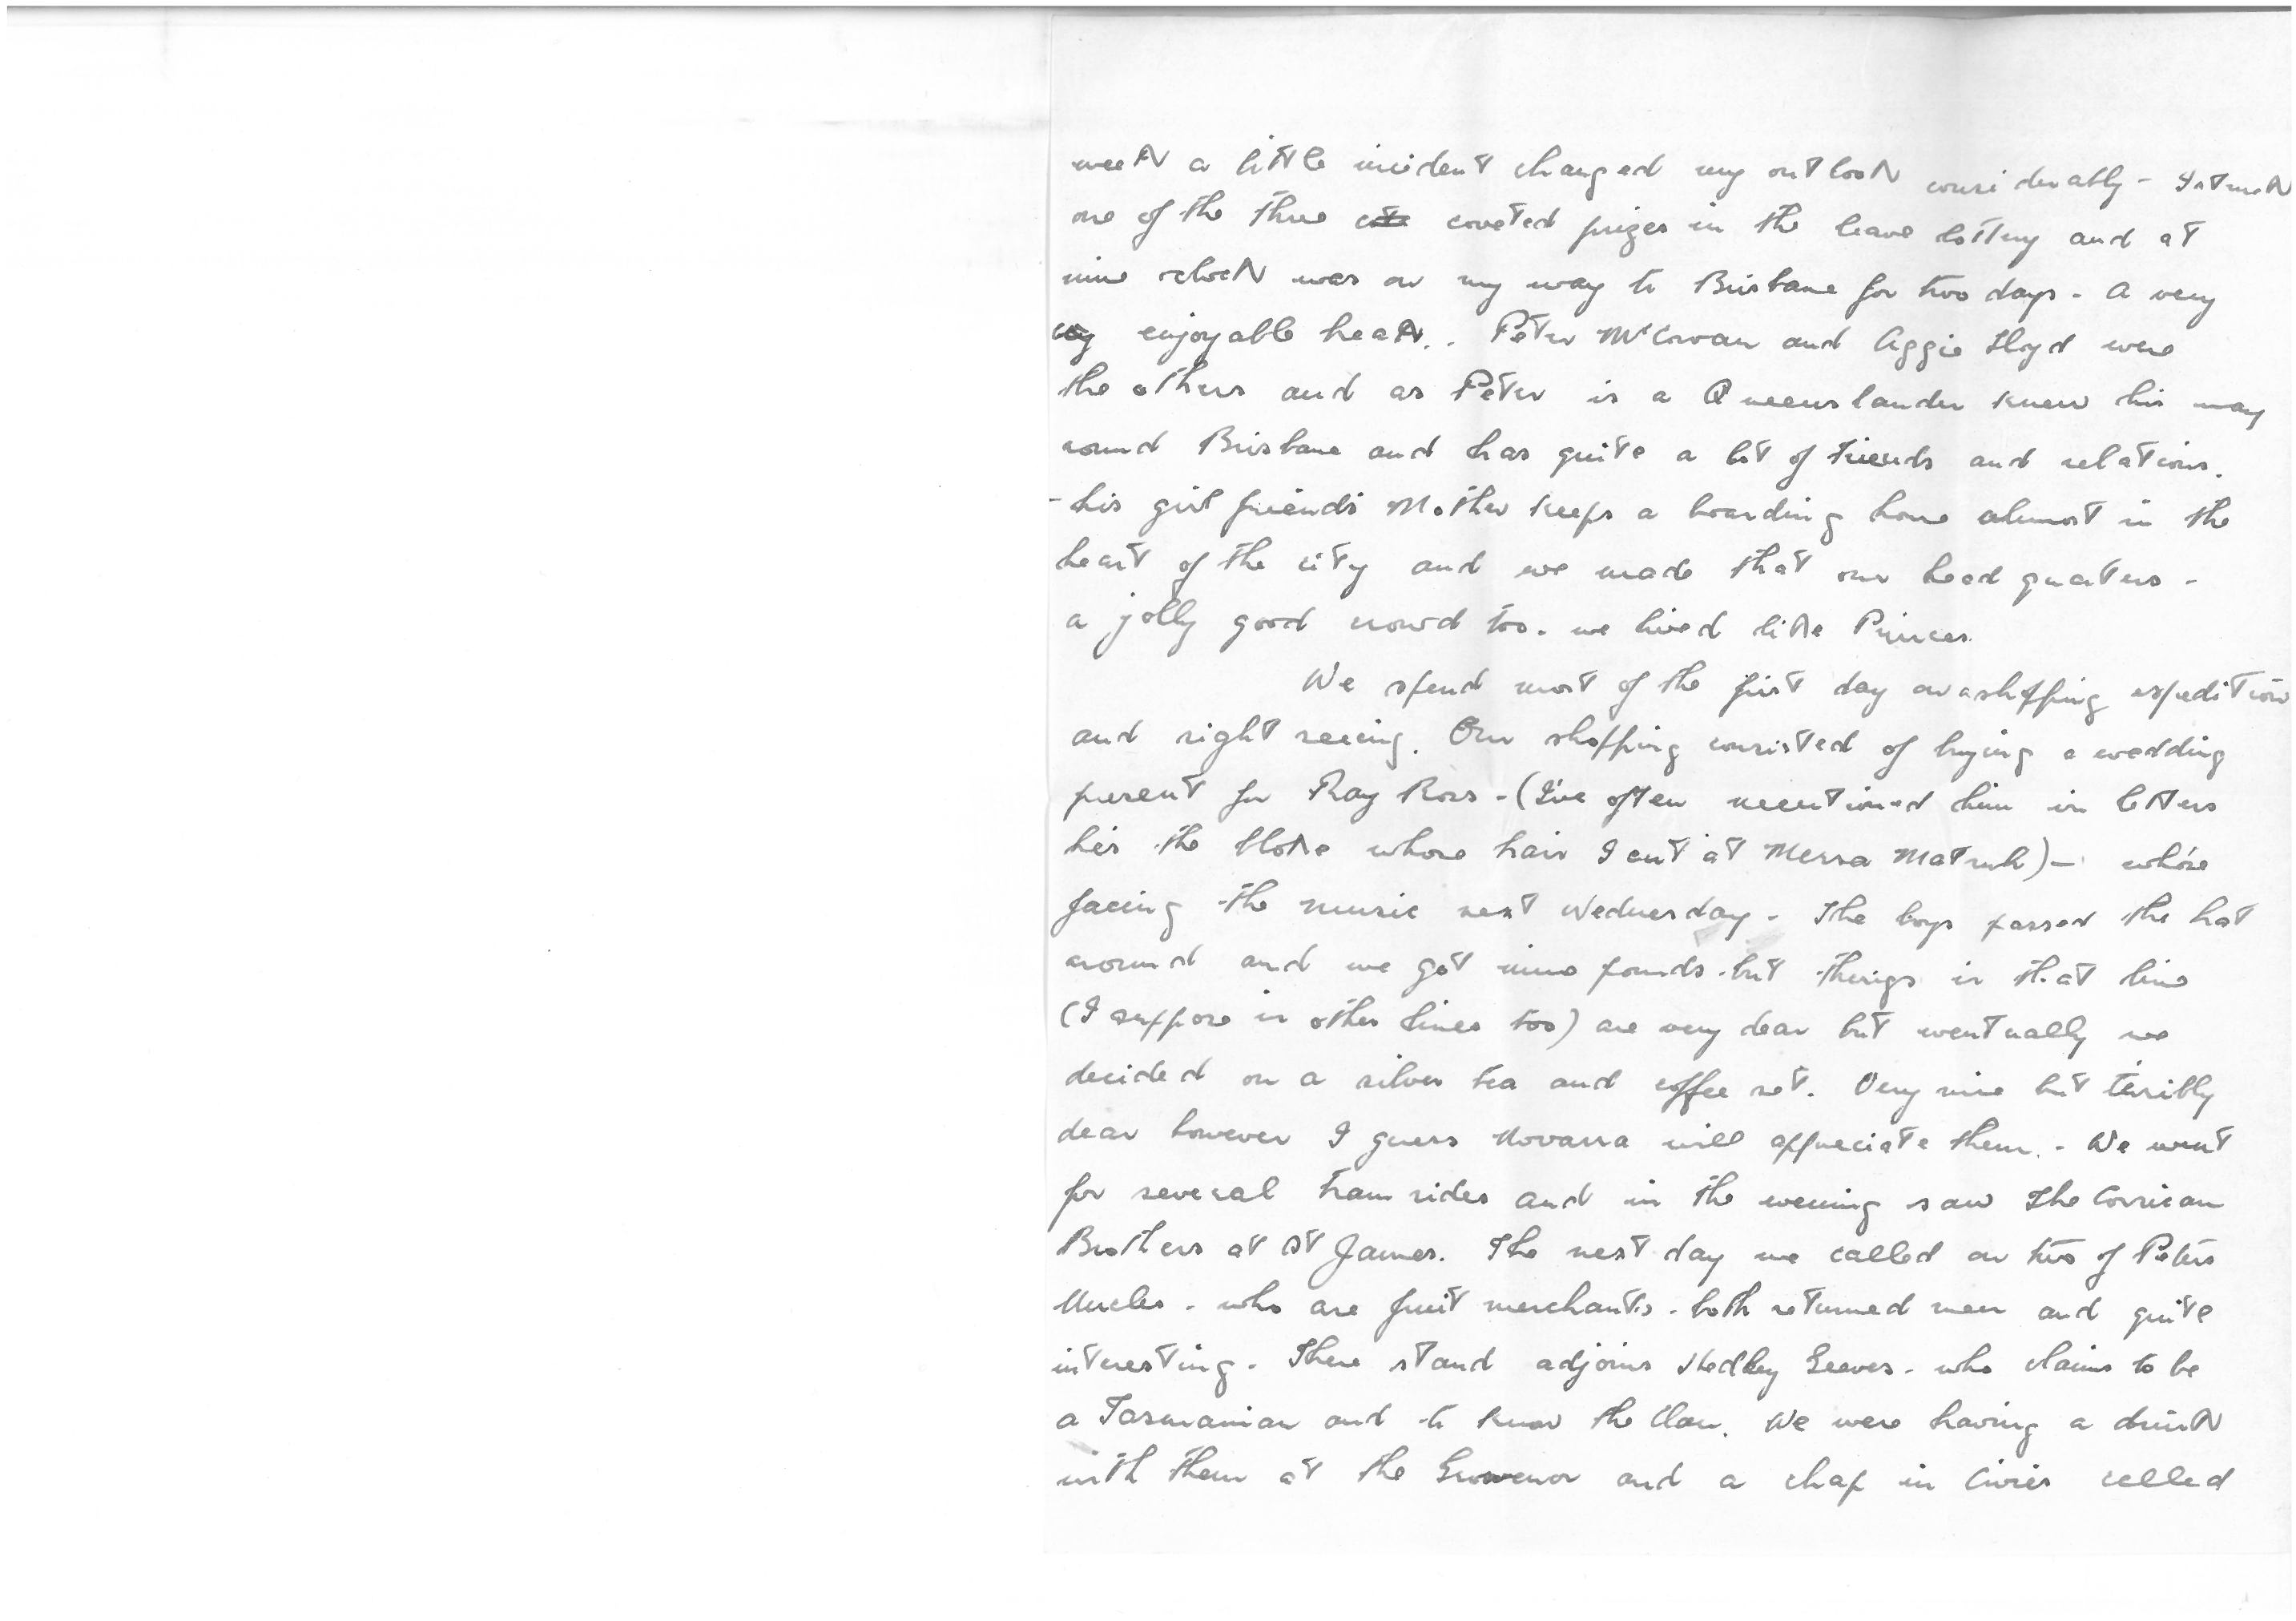 week a little incident changed my outlook considerably - I struck
one of the three coveted prizes in the leave lottery and at
nine oclock was on my way to Brisbane for two days. A very
enjoyable break.. Peter McCowan and Aggie Lloyd were
the others and as Peter is a Queenslander knew his way
round Brisbane and has quite a lot of friends and relations.
- his girl friends Mother keeps a boarding house almost in the
heart of the city and we made that our head quarters -
a jolly good crowd too. we lived like Princes.
We spend most of the first day on a shopping expedition
and sight seeing. Our shopping consisted of buying a wedding
present for Ray Ross - (I've often mentioned him in letters
he's the bloke whose hair I cut at Mersa Matruh) - who's
facing the music next Wednesday. The boys passed the hat
around and we got nine pounds. but things in that line
(I suppose in other lines too) are very dear but eventually we
decided on a silver tea and coffee set. Very nice but terribly
dear however I guess will appreciate them. - We went
for several tram rides and in the evening saw The Corsican
Brothers at St James. The next day we called on two of Peters
Uncles. who are fruit merchants. both returned men and quite
interesting. There stand adjoins Hedley Geeves. who claims to be
a Tasmanian and to know the Clan. We were having a drink
with them at the Grosvenor and a chap in Civies called